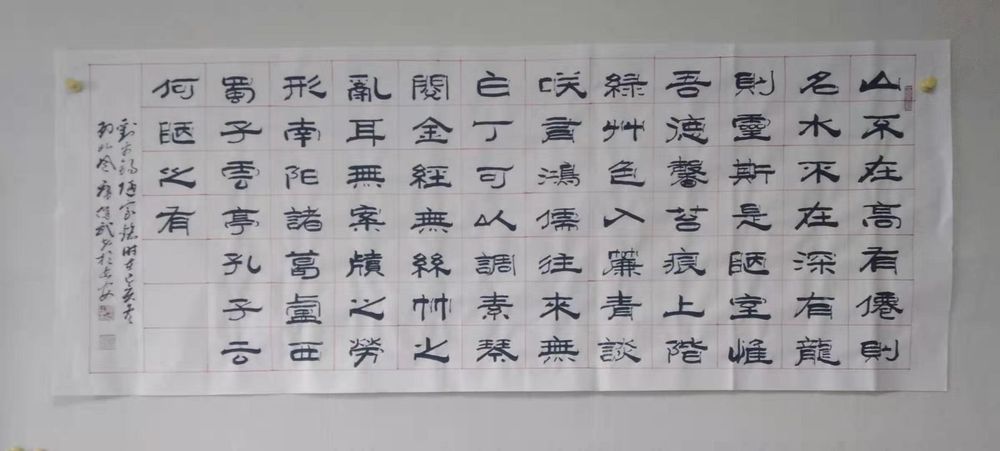 山不在高有僊則
名水不在深有龍
則靈斯是陋室惟
吾德馨苔痕上階
綠艸色入簾青談
咲言鴻儒往來無
白丁可以調素琴
閱金經無絲竹之
亂耳無案牘之勞
形南陽諸葛盧西
蜀子雲亭孔子云
何陋之有
劉禹錫陋室銘時在己亥春